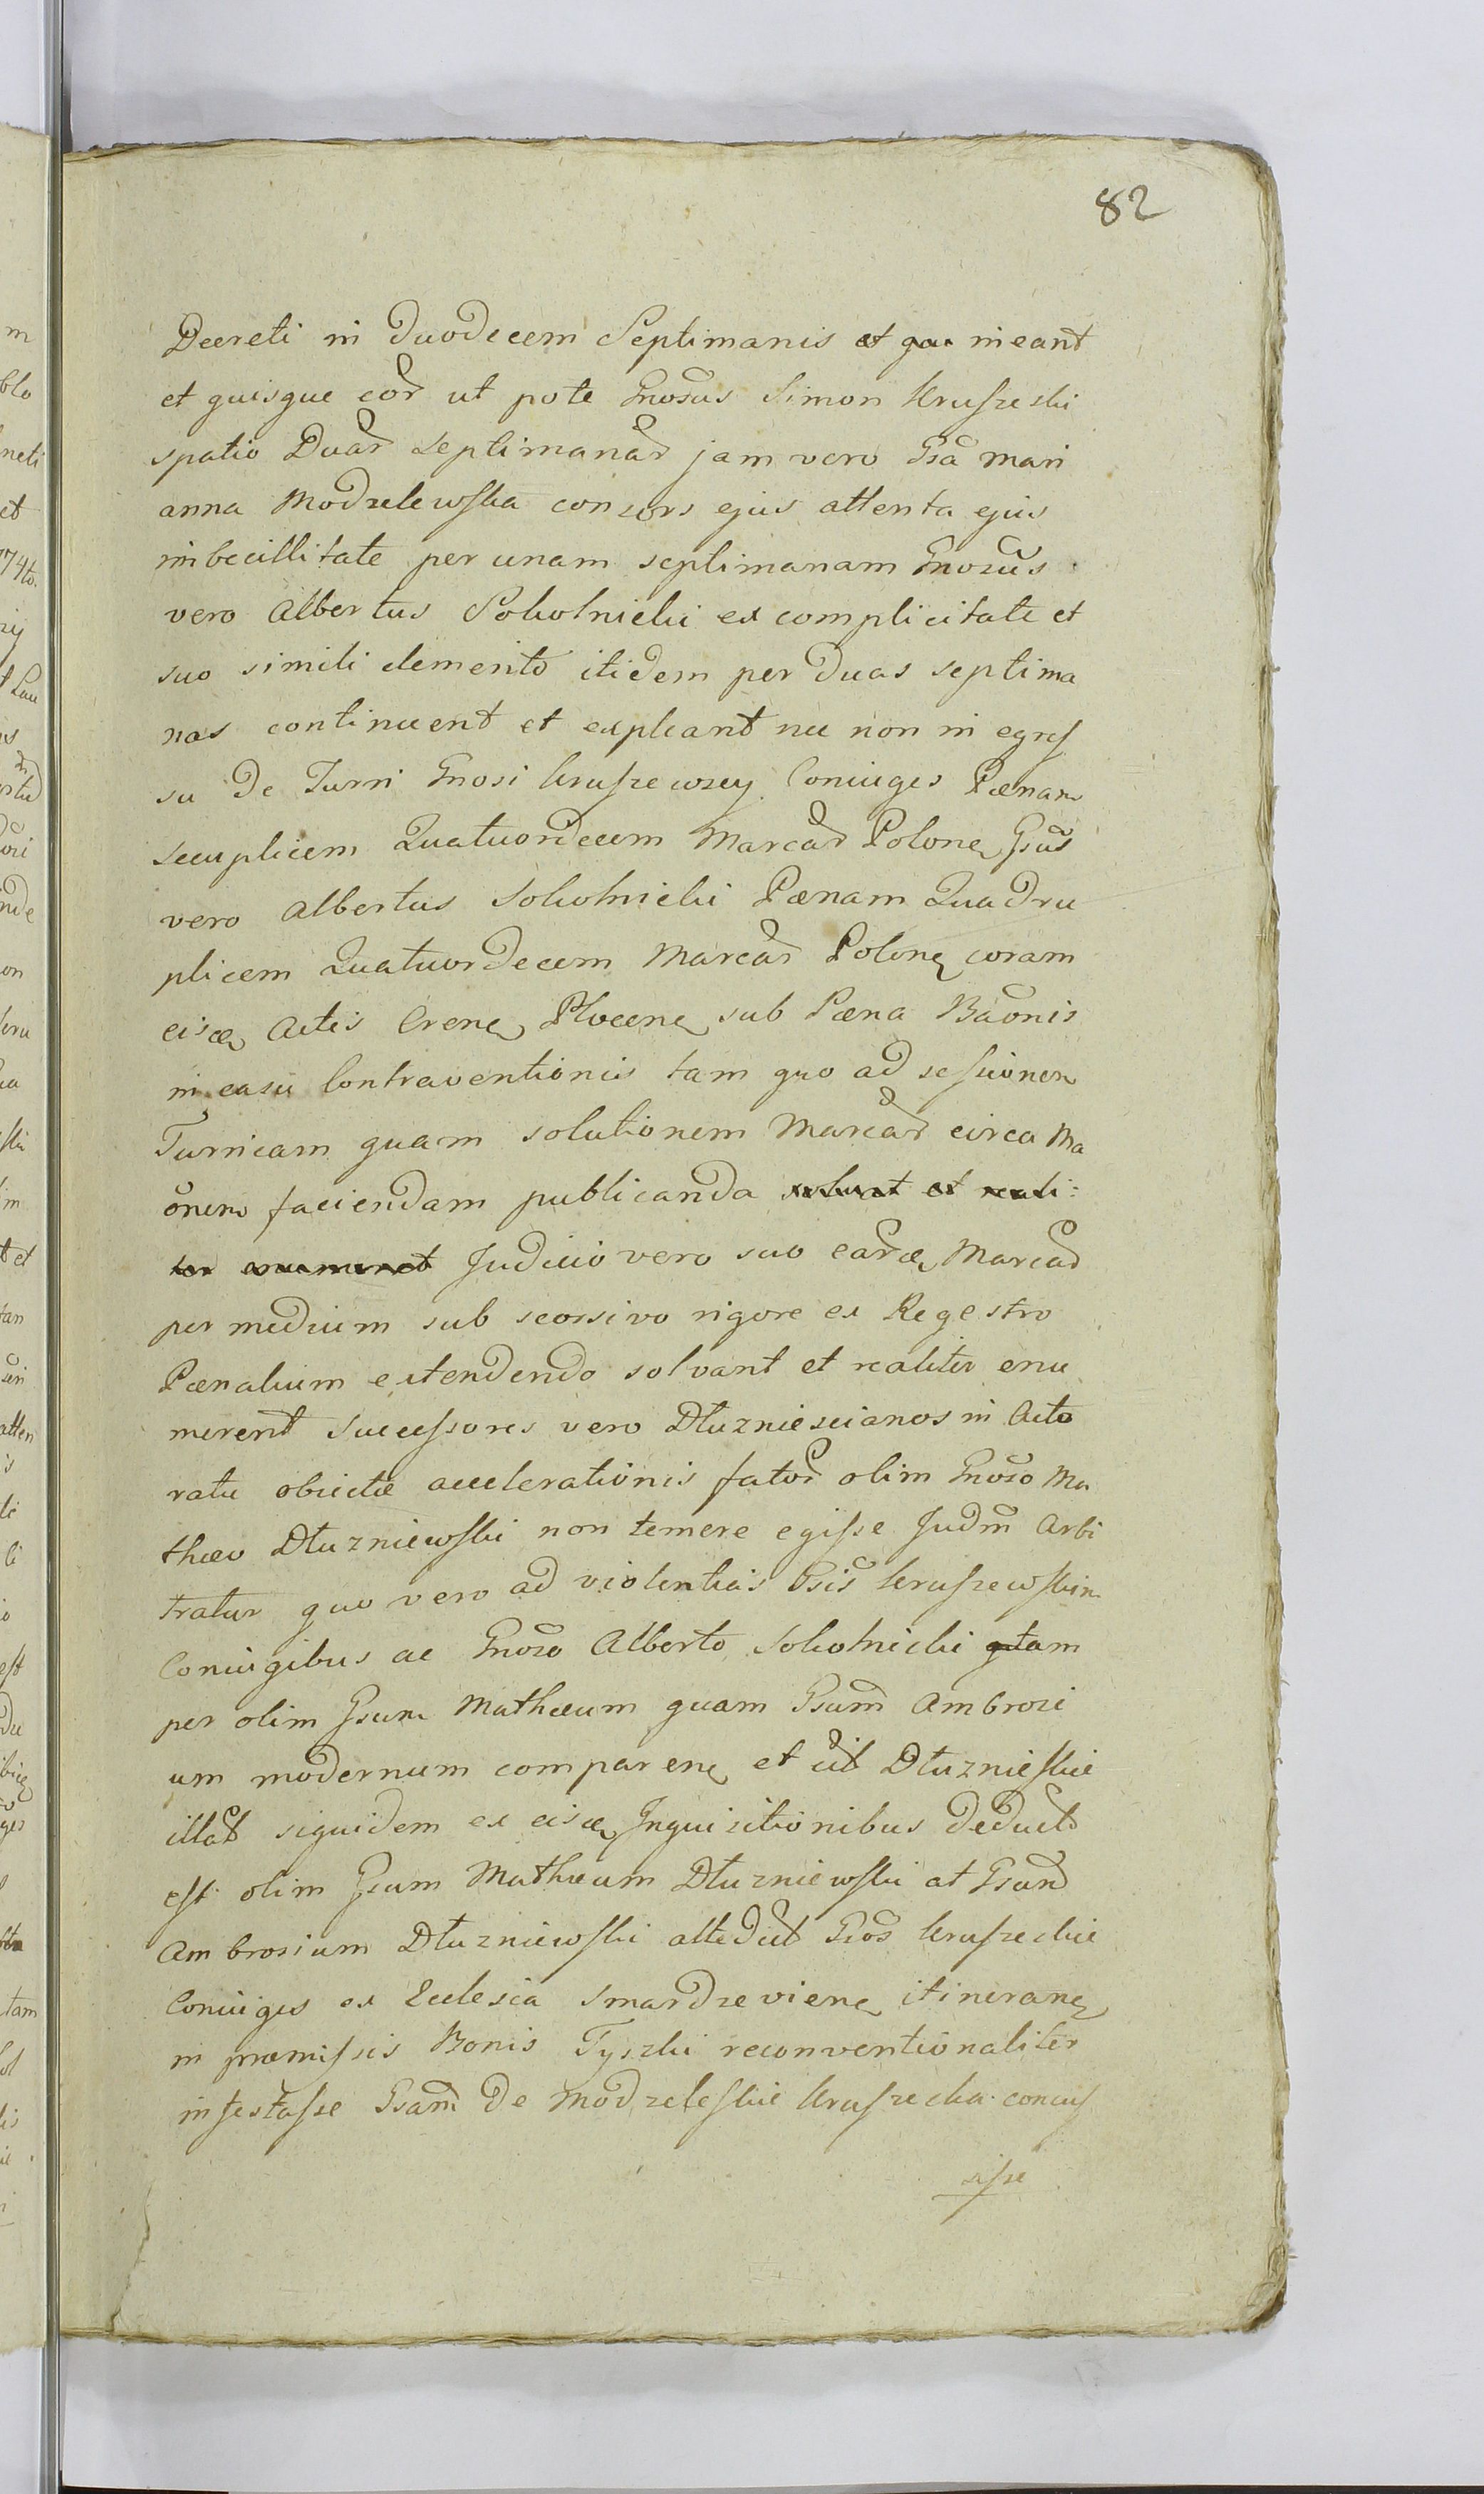 82
Decreti in duodecem Septimanis et qua ineant
et quisque eor ut pote Gnosus Simon Kruszeski
spatio Duar septimanar jam vero Gsa Mari
anna Modzelewska consors ejus attenta ejus
imbecillitate per unam septimanam Gnosus
vero Albertus Sokolnicki ex complicitate et
suo simili demerito itidem per duas septima
nas continuent et expleant nec non in egres
su de Turri Gnosi Kruszewscy Coniuges Pænam
sexuplicem Quatuordecem Marcar Polone Gsus
vero Albertus Sokolnicki Pænam Quadru
plicem Quatuordecem Marcar Polone coram
eisdem Actis Crene Plocene sub Pæna Baonis
in casu Contraventionis tam quo ad sessionem
Turricam quam solutionem Marcar circa Ma
onem faciendam publicanda solvat et reali:
ter enumeret Judicio vero suo earde Marcar
per medium sub seorsivo rigore ex Regestro
Pænalium extendendo solvant et realiter enu
merent Successores vero Dłuzniescianos in Acto
ratu obiectæ accelerationis fator olim Gnoso Ma
thæo Dłuzniewski non temere egisse Judm Arbi
tratur quo vero ad violentias Gsis Kruszewskim
Coniugibus ac Gnoso Alberto Sokolnicki tam
per olim Gsum Mathæum quam Gsum Ambrosi
um modernum comparene et cit Dłuznieskie
illat siquidem ex eisde Inquisitionibus deducto
est olim Gsum Mathæum Dłuzniewski at Gsum
Ambrosium Dłuzniewski attedict Gsos Kruszeckie
Coniuges ex Ecclesia Smardzeviene itinerane
in præmissis Bonis Tyszki reconventionaliter
infestasse Gsam de Modzeleskie Kruszecka concus
sisse